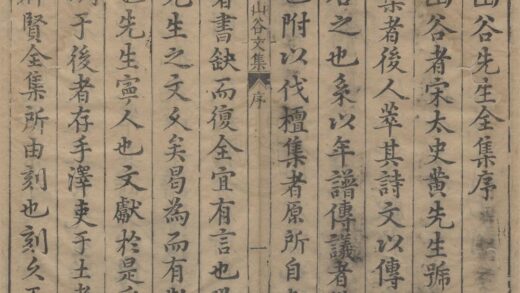 山谷先生全集序
山谷者宋太史黃先生號
集者後人萃其詩文以傳
名之也系以年譜傳議者
也附以伐檀集者原所自
山谷文集 序 一
書缺而復全宜有言也
先生之文久矣曷為而有
也先生寧人也文獻於是
于後者存手澤吏于土者
賢全集所由刻也刻久